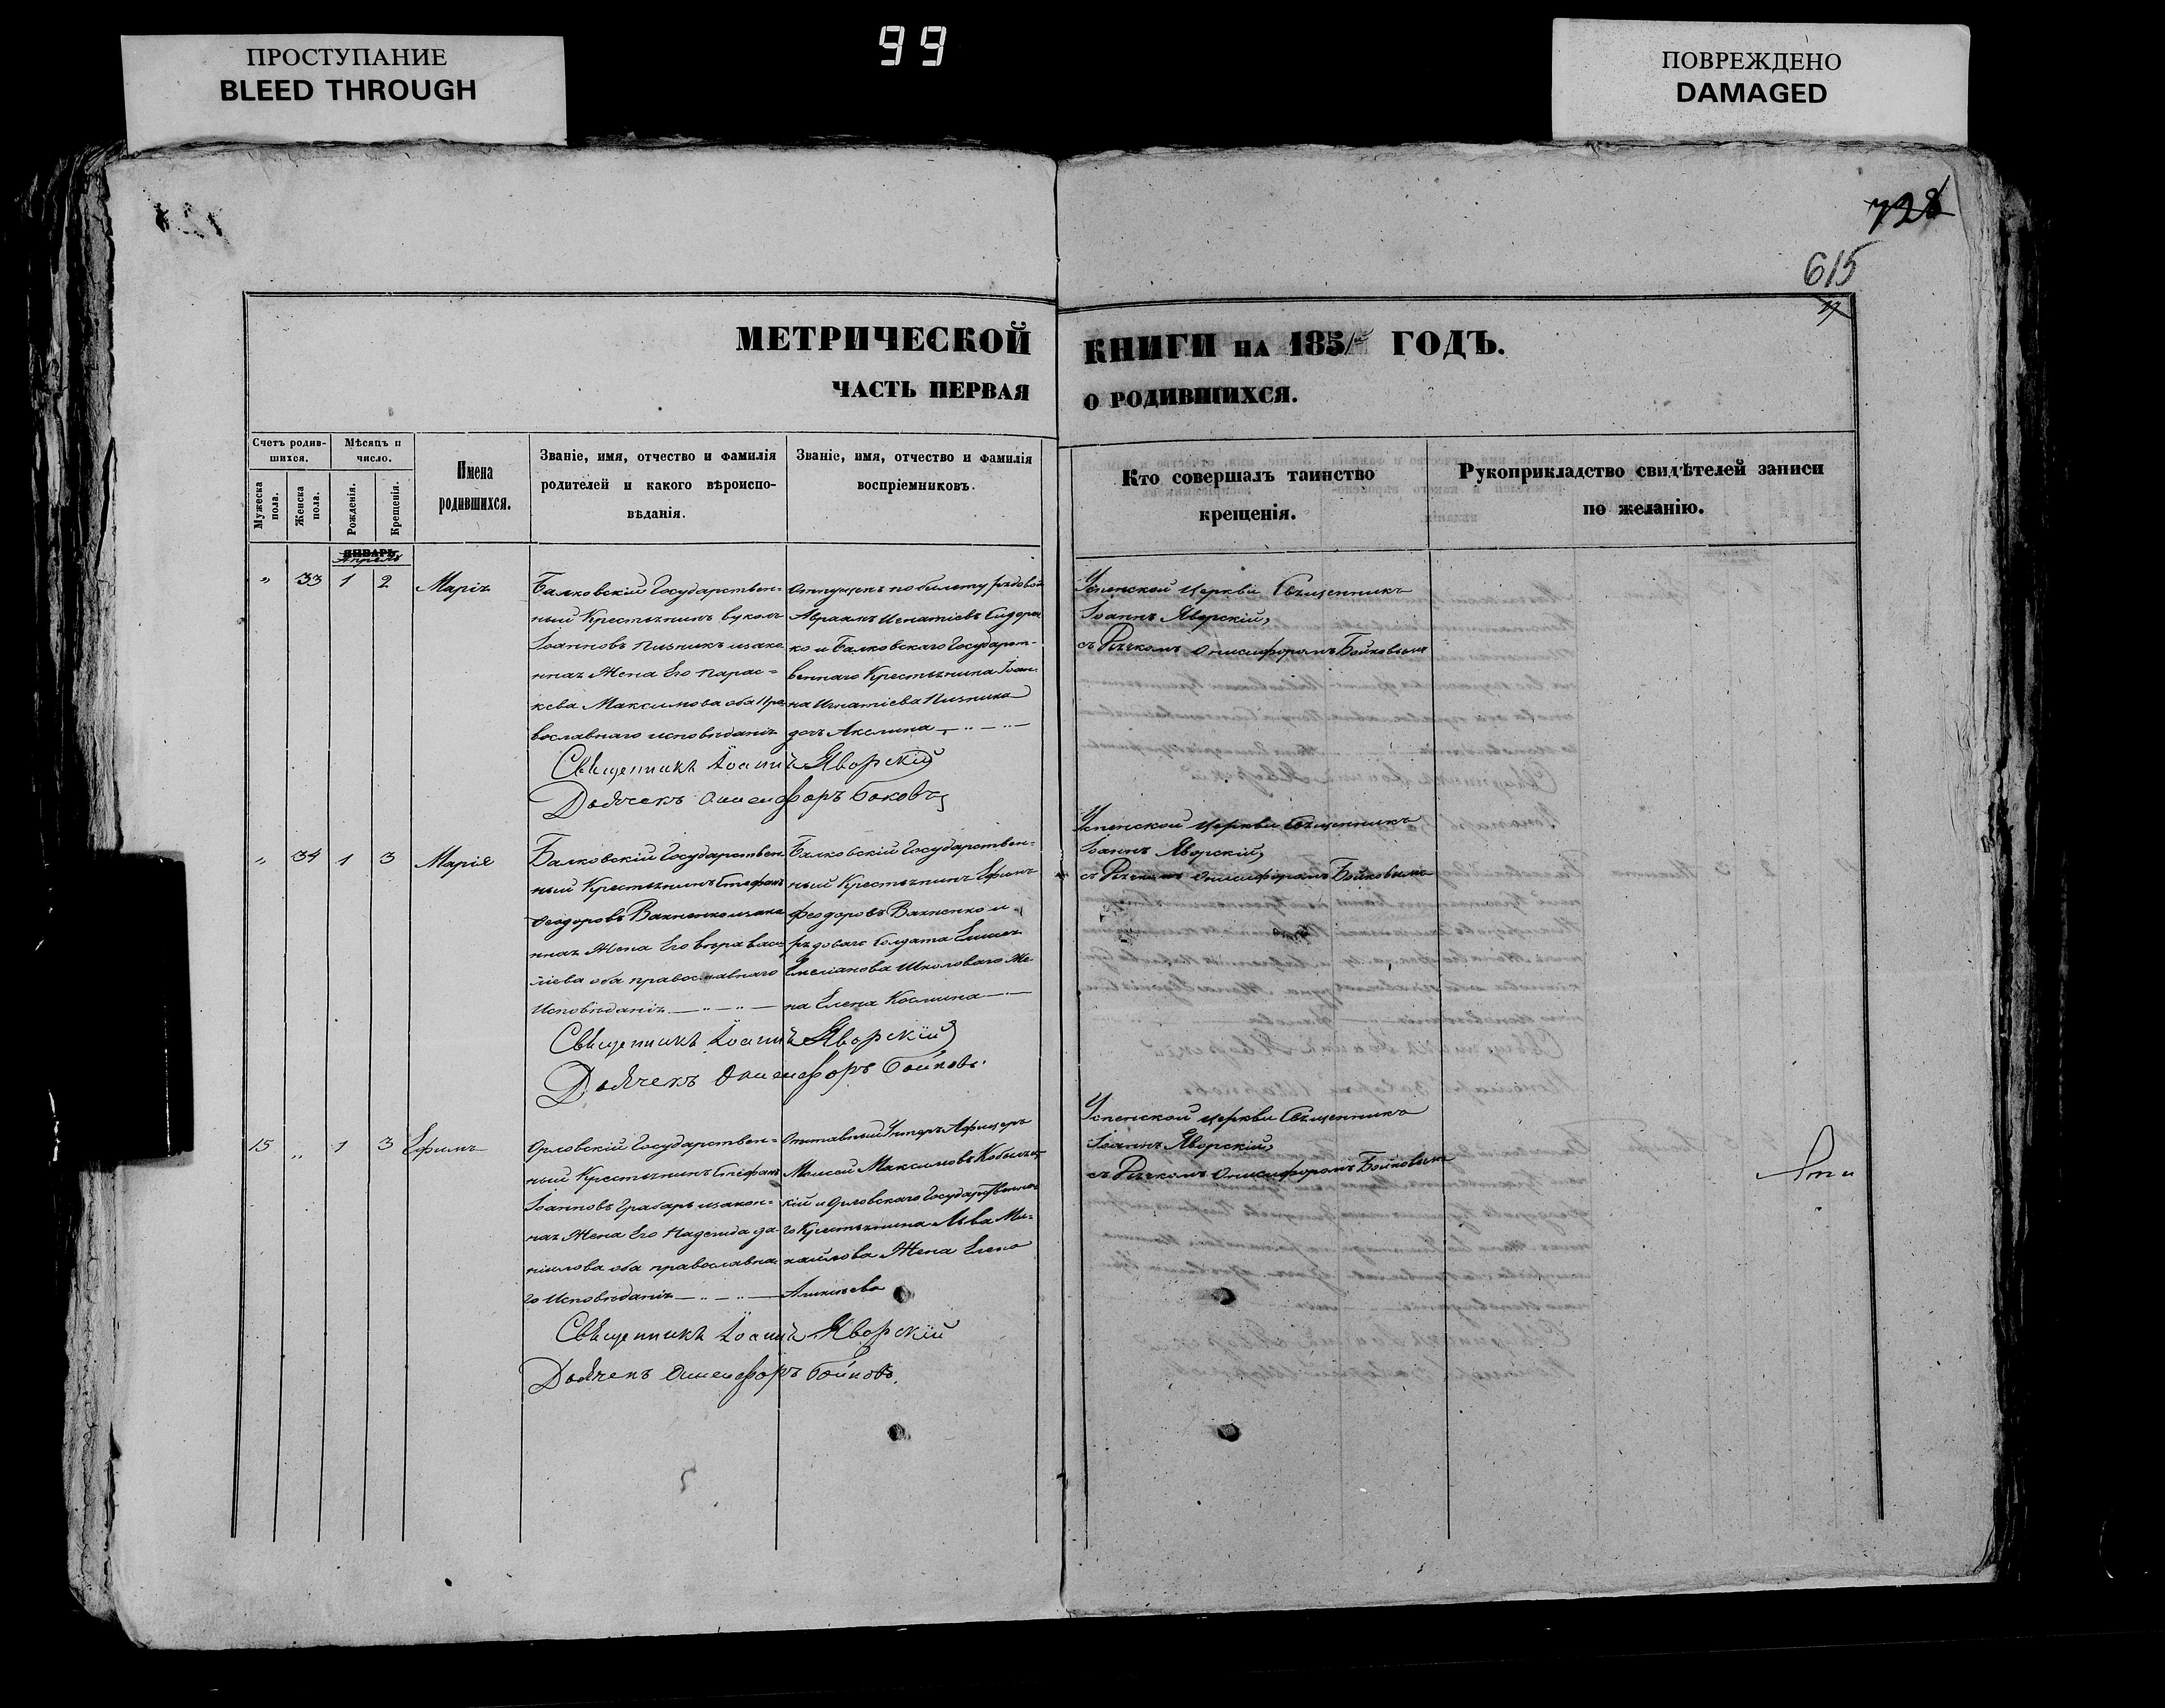 ПРОСТУПАНИЕ
BLEED THROUGH
99
ПОВРЕЖДЕНО
DAMAGED
728
615
МЕТРИЧЕСКОЙ
ЧАСТЬ ПЕРВАЯ
КНИГИ НА 1851й ГОДЪ.
О РОДИВШИХСЯ.
Счетъ родив-
шихся.
Мужеска пола.
Женска пола.
Мѣсяцъ и
число.
Рожденія.
Крещенія.
Имена
родившихся.
Званіе, имя, отчество и фамилія
родителей и какого вѣроиспо-
вѣданія.
Званіе, имя, отчество и фамилія
воспріемниковъ.
Кто совершалъ таинство
крещенія.
Рукоприкладство свидѣтелей записи
по желанію.
ЯНВАРЬ
Апрель
" 33 1 2 Марія
Балковскій Государствен=
ный Крестьянинъ Вуколъ
Іоанновъ Пизникъ изако
нная Жена Его Парас=
кева Максимова оба Пра
вославнаго исповѣданія
Отпущенъ по билету рядовой
Авраамъ Игнатіевъ Сидорен
ко и Балковскаго Государст-
веннаго Крестьянина Іоан
на Игнатіева Пизника
дочь Акелина
Священникъ Іоаннъ Яворскій
Дьячекъ Онисифоръ Боковъ
Успенской Церкви Священникъ
Іоаннъ Яворскій,
съ Дьячкомъ Онисифоромъ Бойковымъ
" 34 1 3 Марія
Балковскій Государствен
ный Крестьянинъ Стефанъ
Феодоровъ Вакненко изако
нная Жена Его Вѣра Васи
ліева оба православнаго
Исповѣданія
Балковскій Государствен-
ный Крестьянинъ Ефимъ
Феодоровъ Вакненко и
рядоваго Солдата Елисея
Емеліанова Школоваго Же
на Елена Космина
Священникъ Іоаннъ Яворскій
Дьячекъ Онисифоръ Бойковъ.
Успенской Церкви Священникъ
Іоаннъ Яворскій,
съ Дьячкомъ Онисифоромъ Бойковымъ
15 " 1 3 Ефимъ
Орловскій Государствен=
ный Крестьянинъ Стефанъ
Іоанновъ Грабарь изакон=
ная Жена Его Надежда Да
ніилова оба православна
го Исповѣданія
Отставный Унтеръ Афицеръ
Моисей Максимовъ
кій и Орловскаго Государственна
го Крестьянина Льва Ми=
хайлова Жена Елена
Алексѣева
Священникъ Іоаннъ Яворскій
Дьячекъ Онисифоръ Бойковъ.
Успенской церкви Священникъ
Іоаннъ Яворскій,
съ Дьячкомъ Онисифоромъ Бойковымъ